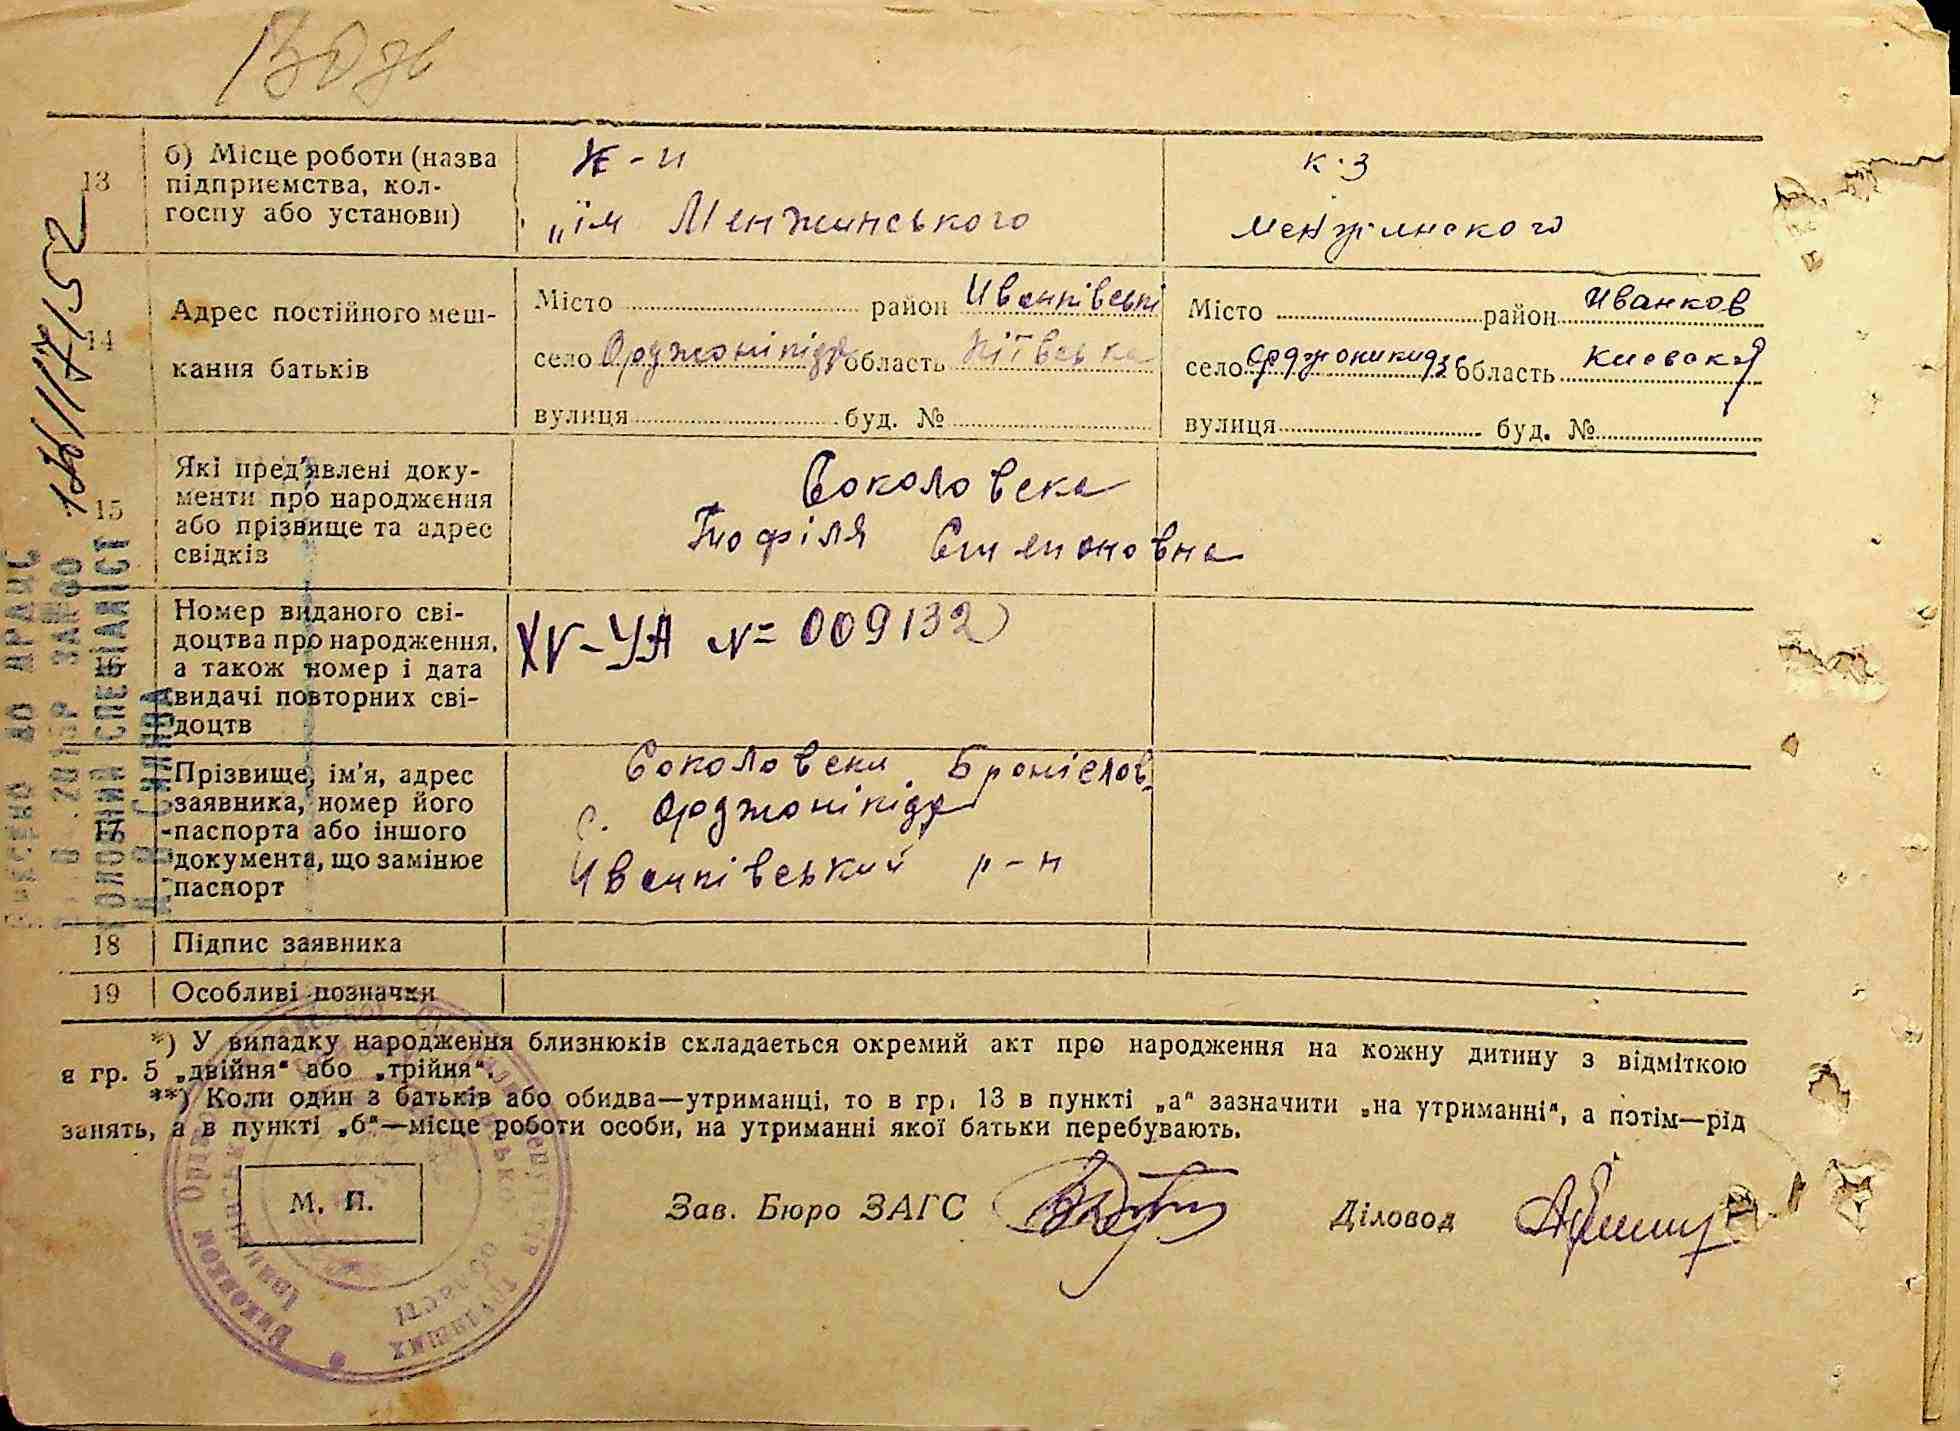 13
б) Місце роботи (назва
підприємства, кол-
госпу або установи)
к-п
"ім Менжинського
к-з
Менжинского
14
Адрес постійного меш-
кання батьків
Місто район Иванківськи
село Орджонікідзе область Київська
вулиця буд. №
Місто район Иванков
село Орджоникидзе область Киевская
вулиця буд. №
15
Які пред'явлені доку-
менти про народження
або прізвище та адрес
свідків
Соколовска
Тиофіля Симоновна
16
Номер виданого сві-
доцтва про народження,
а також номер і дата
видачі повторних сві-
доцтв
XV-УА № 009132
17
Прізвище, ім'я, адрес
заявника, номер його
паспорта або іншого
документа, що замінює
паспорт
Соколовски Броніслов
с. Орджонікідзе
Иванківський р-н
18
Підпис заявника
19
Особливі позначки
*) У випадку народження близнюків складається окремий акт про народження на кожну дитину з відміткою
в гр. 5 „двійня" або „трійня".
**) Коли один з батьків або обидва—утриманці, то в гр. 13 в пункті „а" зазначити „на утриманні", а потім—рід
занять, а в пункті „б"—місце роботи особи, на утриманні якої батьки перебувають.
М. П.
Зав. Бюро ЗАГС
Діловод
ГОЛОВНИЙ СПЕЦІАЛІСТ
Виконком
трудящих
області